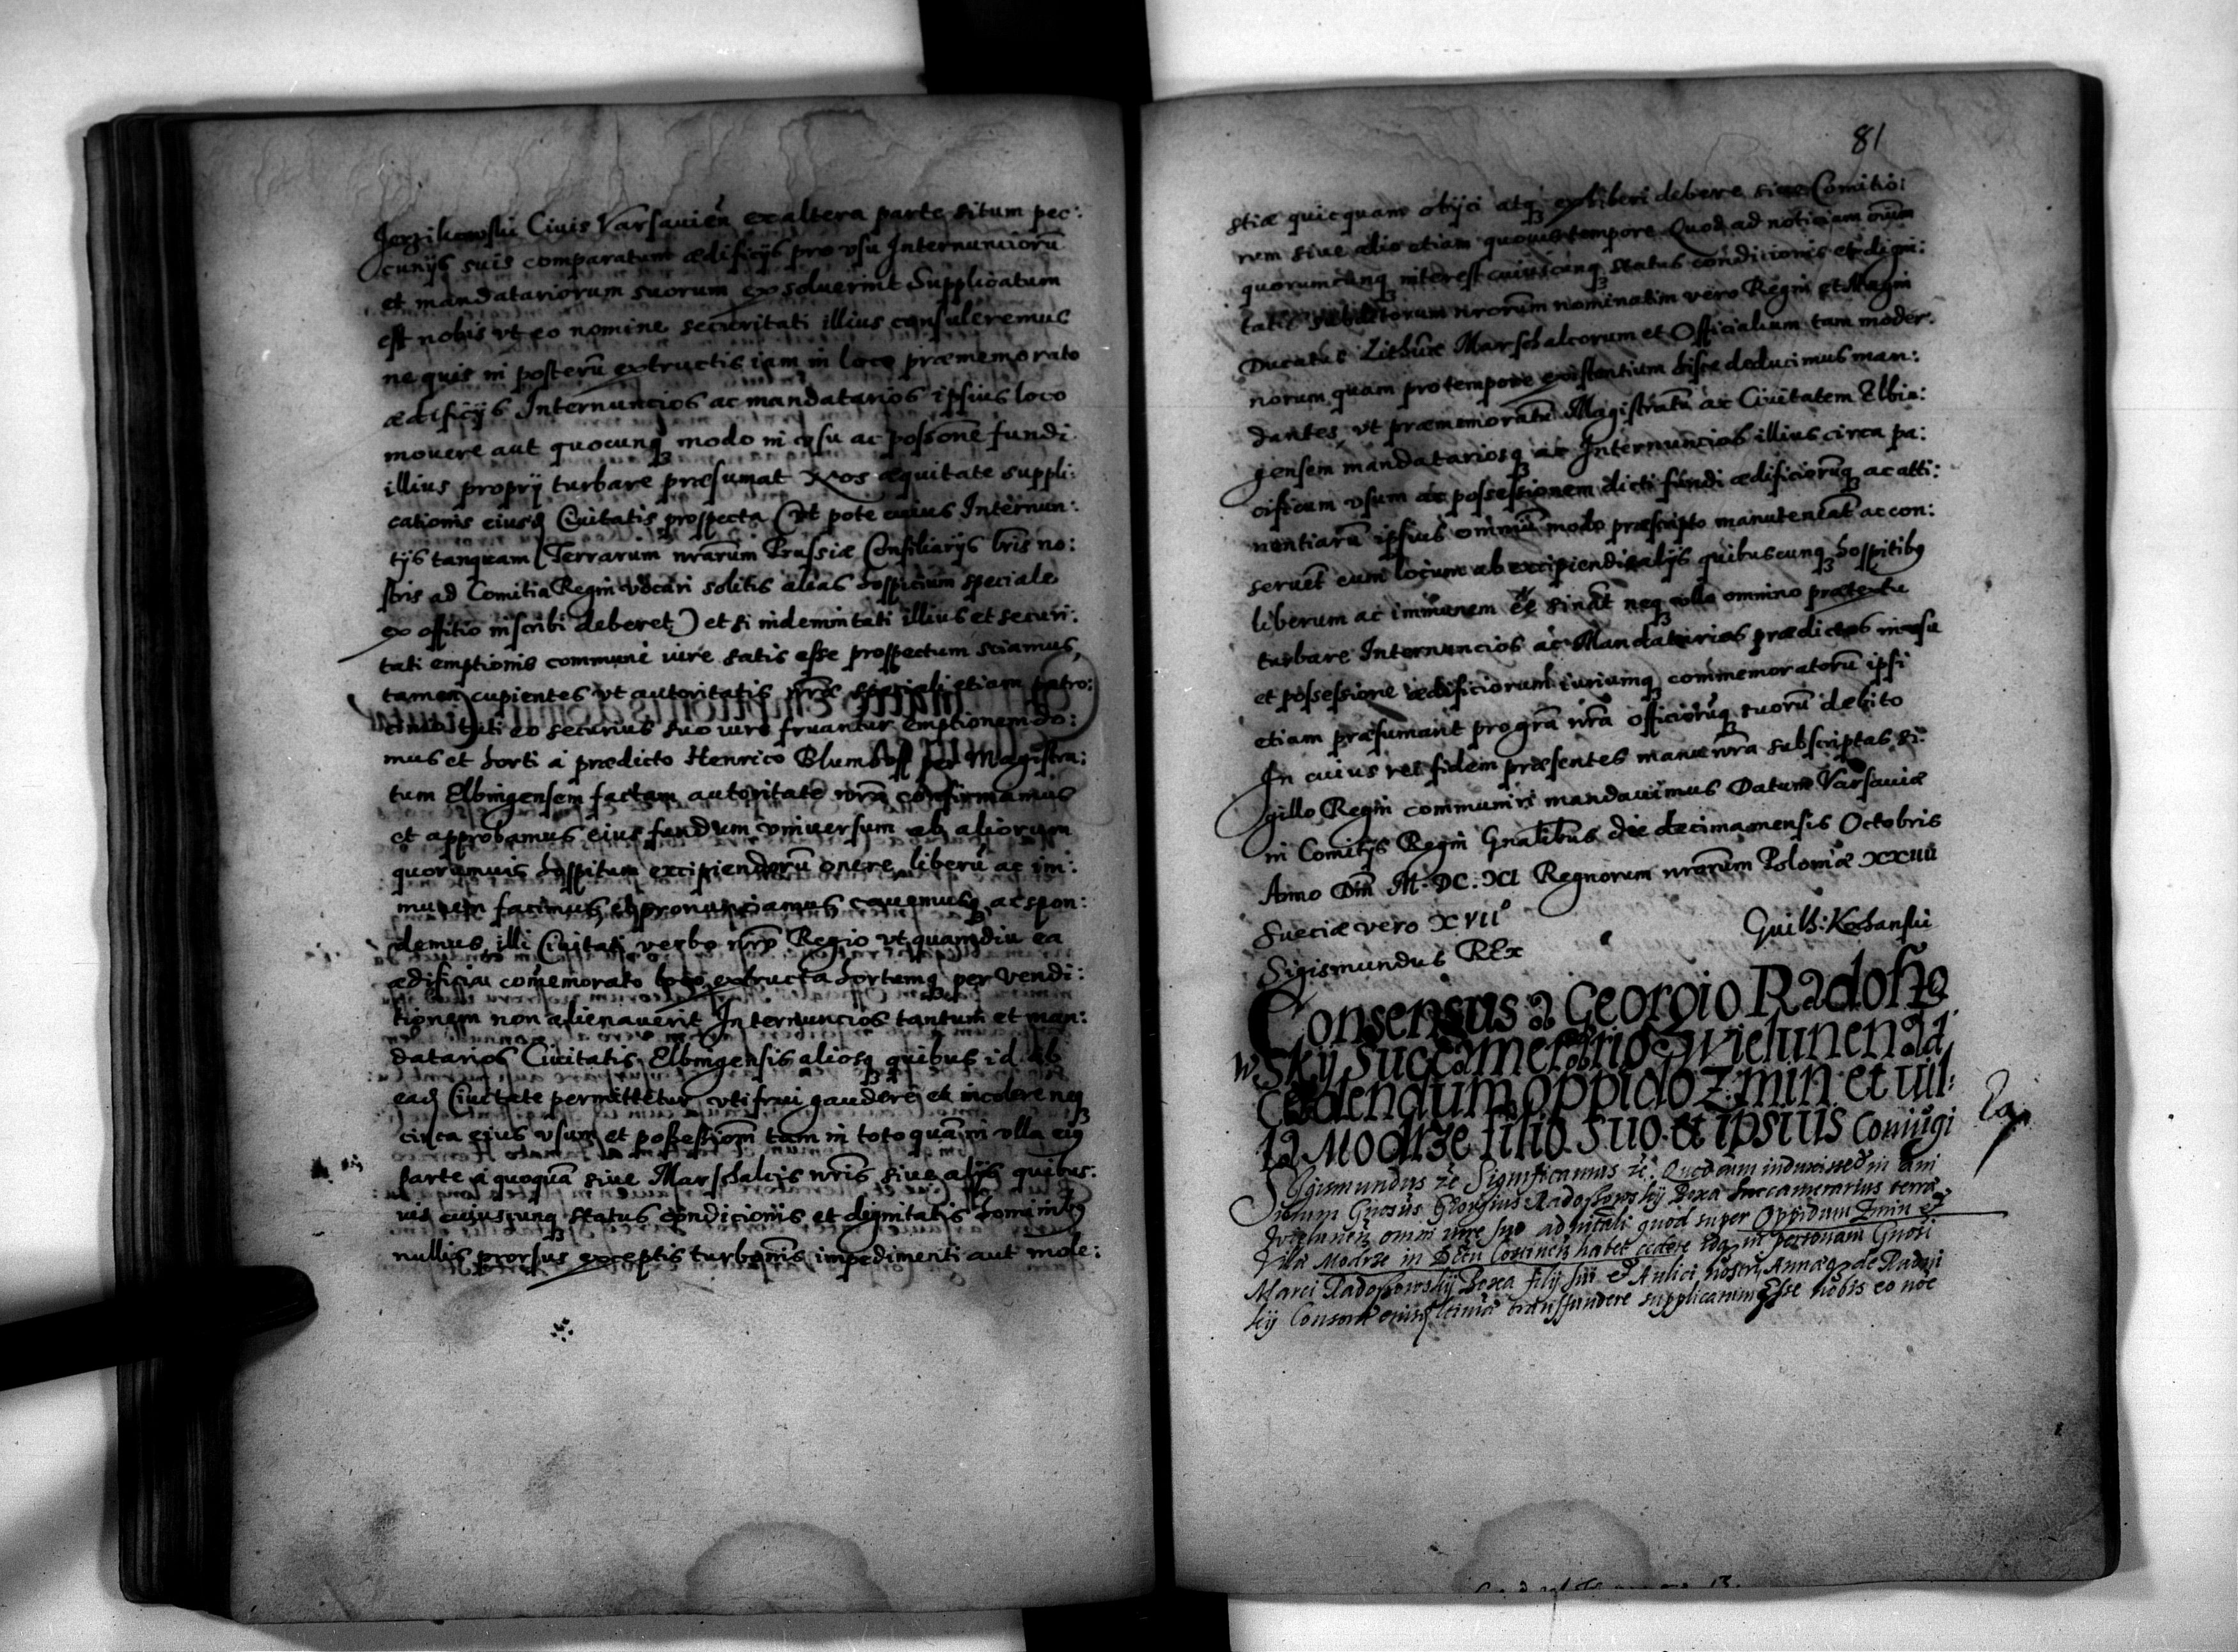 Jerzikowski Ciuis Varsauien̄ ex altera parte situm pec:
cunijs suis comparatum ædificijs pro vsu Internunciorū
et mandatariorum suorum exsoluerint Supplicatum
est nobis vt eo nomine securitati illius consuleremus
ne quis in posterū extructis iam in loco præmemorato
ædificijs Internuncios ac mandatarios ipsius loco
mouere aut quocunq modo in vsu ac possone fundi
illius proprij turbare præsumat Nos æquitate suppli:
cationis eiusd Ciuitatis prospecta (vt pote cuius Internun:
tijs tanquam Terrarum nrarum Prussiæ Consiliarijs lris no:
stris ad Comitia Regni vocari solitis alias hospitium speciale
ex offitio inscribi deberet) et si indemnitati illius et securi:
tati emptionis communi iure satis esse prospectum sciamus,
tamen cupientes vt autoritatis nræ speciali etiam patro:
cinio tuti eo securius suo iure fruantur emptionem do:
mus et horti à prædicto Henrico Blumhoff per Magistra:
tum Elbingensem factam autoritate nrā confirmamus
et approbamus eius fundum vniuersum ab aliorum
quorumuis hospitum excipiendorū onere liberū ac im:
munem facimus et pronunciamus cauemusq ac spon:
demus illi Ciuitati verbo nrō Regio vt quamdiu ea
ædificia com̄emorato loco extructa hortumq per vendi:
tionem non alienauerit Internuncios tantum et man:
datarios Ciuitatis Elbingensis aliosq quibus id ab
ead Ciuitate permittetur vti frui gaudere et incolere neq
circa eius vsum et possessiom̄ tam in toto quā in vlla eius
parte à quoquā siue Marschalcis nrīs siue alijs quibus:
uis cuiuscunq status condicionis et dignitatis hominibus
nullis prorsus exceptis turbom̄is impedimenti aut mole:
81
stiæ quicquam obijci atq exhiberi debere siue Comitio:
rum siue alio etiam quouis tempore Quod ad noticiam om̄um
quorumcunq interest cuiuscunq status condicionis et digni:
tatis subditorum nrorum nominatim vero Regni et Magni
Ducatus Lithūæ Marschalcorum et Officialium tam moder:
norum quam pro tempore existentium hisce deducimus man:
dantes vt præmemoratū Magistratū ac Ciuitatem Elbin:
gensem mandatariosq ac Internuncios illius circa pa:
cificum vsum ac possessionem dicti fundi ædificiorūq ac atti:
nentiarū ipsius omnium modo præscripto manuteneāt ac con:
seruēt eum locum ab excipiendis alijs quibuscunq hospitibus
liberum ac immunem eē sināt neq vlla omnino prætextu
turbare Internuncios ac Mandatarios prædictos in vsu
et possessione ædificiorum iuriumq commemoratorū ipsi
etiam præsumant pro grā nrā officiorūq suorū debito
In cuius rei fidem præsentes manu nrā subscriptas si:
gillo Regni communiri mandauimus Datum Varsauiæ
in Comitijs Regni Gnalibus die decima mensis Octobris
Anno Dni M. DC. XI Regnorum nrorum Poloniæ XXIIII
Sueciæ vero XVII°
Guilh: Kochanski
Sigismundus REx
Consensus à Georgio Radosho
wskÿ Succamerario Wielunen ad
cedendum oppido Zmin et vil:
la Modrze filio suo et ipsius Coniugi
Sigismundus &c Significamus &c. Quod cum induxisset in ani
mum Gnosus Georgius Radoszowskÿ Boxa Succamerarius terræ
Wielunen omni iure suo aduitali quod super Oppidum Zmin et
Villā Modrze in Bten Costinen habet cedere idq in personam Gnosi
Marci Radoszowskÿ Boxa filij sui et Aulici nostri, Annæq de Radoni
kÿ Consortis eius legitimæ transfundere supplicatum Esse nobis eo noē